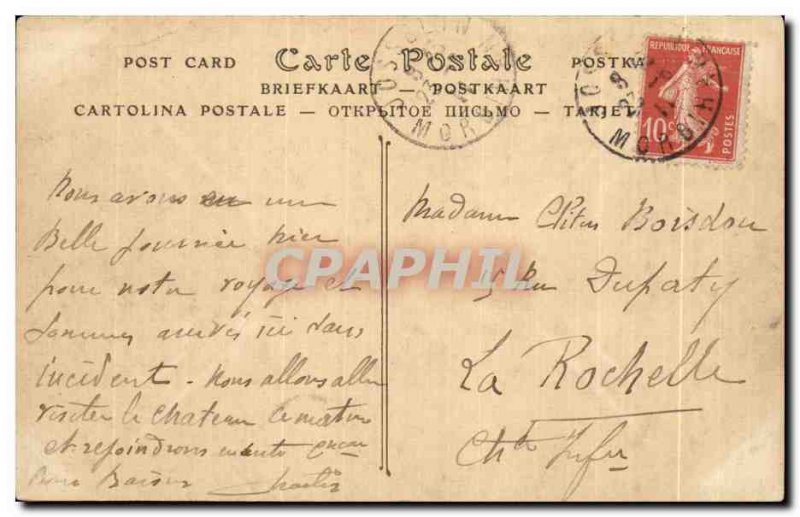 POST CARD Carte Postale POSTKA
BRIEFKAART — POSTKAART
CARTOLINA POSTALE — ОТКРЫТОЕ ПИСЬМО — TARJET
JOSSELIN
MORBIHAN
REPUBLIQUE FRANÇAISE
10c
POSTES
CPAPHIL
Nous avons eu une
Belle journée hier
pour notre voyage et
sommes arrivés ici sans
incident - Nous allons aller
visiter le chateau ce matin
et rejoindrons ensuite
Bons Baisers Charles
Madame Boisdon
15 Rue Dupaty
La Rochelle
Chte Infre